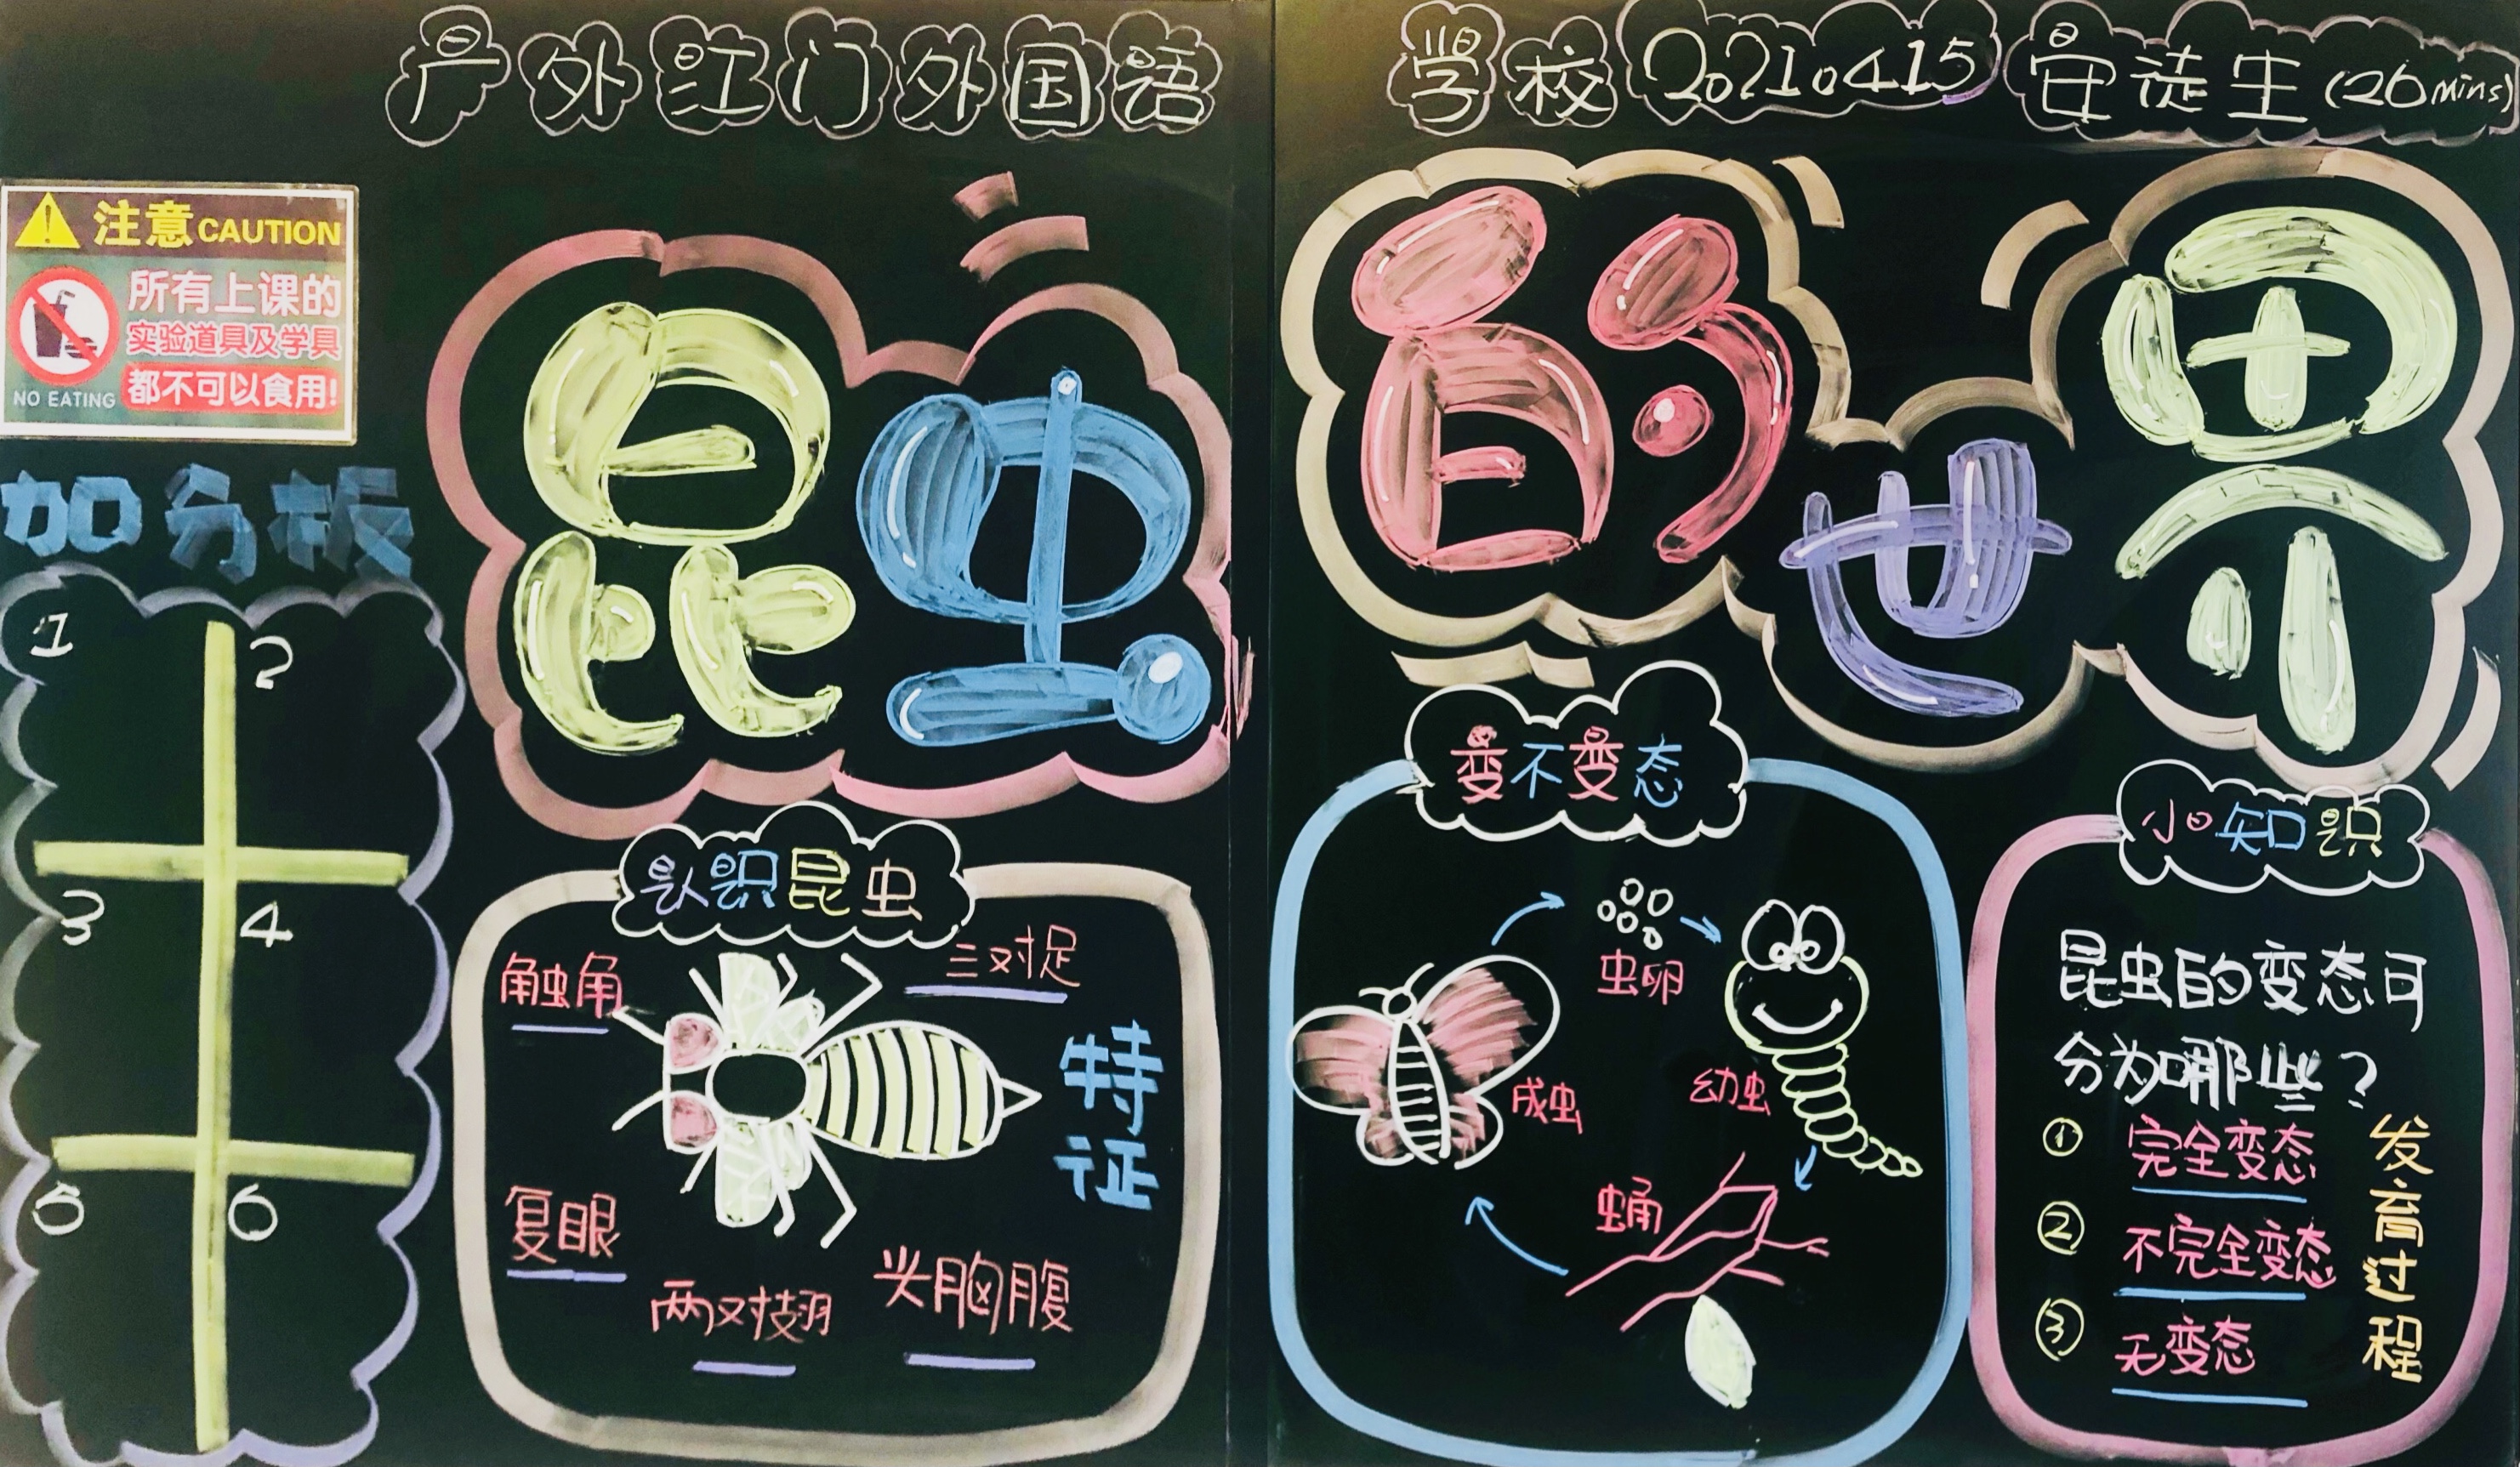 户外红门外国语学校 20210415 安徒生(26mins)
注意 CAUTION
所有上课的
实验道具及学具
都不可以食用!
NO EATING
加分板
1 2
3 4
5 6
昆虫的世界
认识昆虫
触角
三对足
特征
复眼
两对翅
头胸腹
变不变态
虫卵
幼虫
蛹
成虫
小知识
昆虫的变态可
分为哪些?
① 完全变态
② 不完全变态
③ 无变态
发育过程